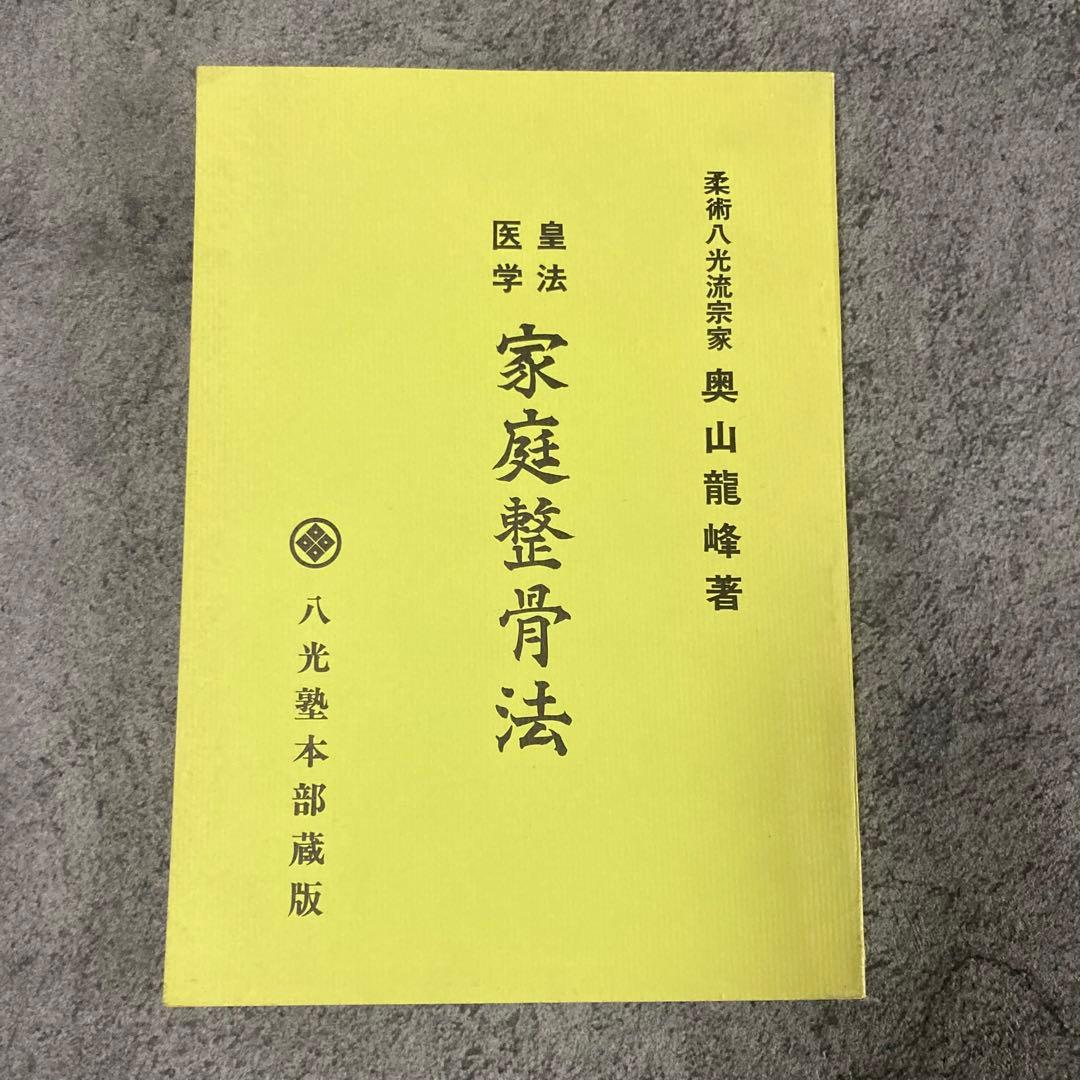 柔術八光流宗家 奥山龍峰著
皇法
医学
家庭整骨法
八光塾本部蔵版